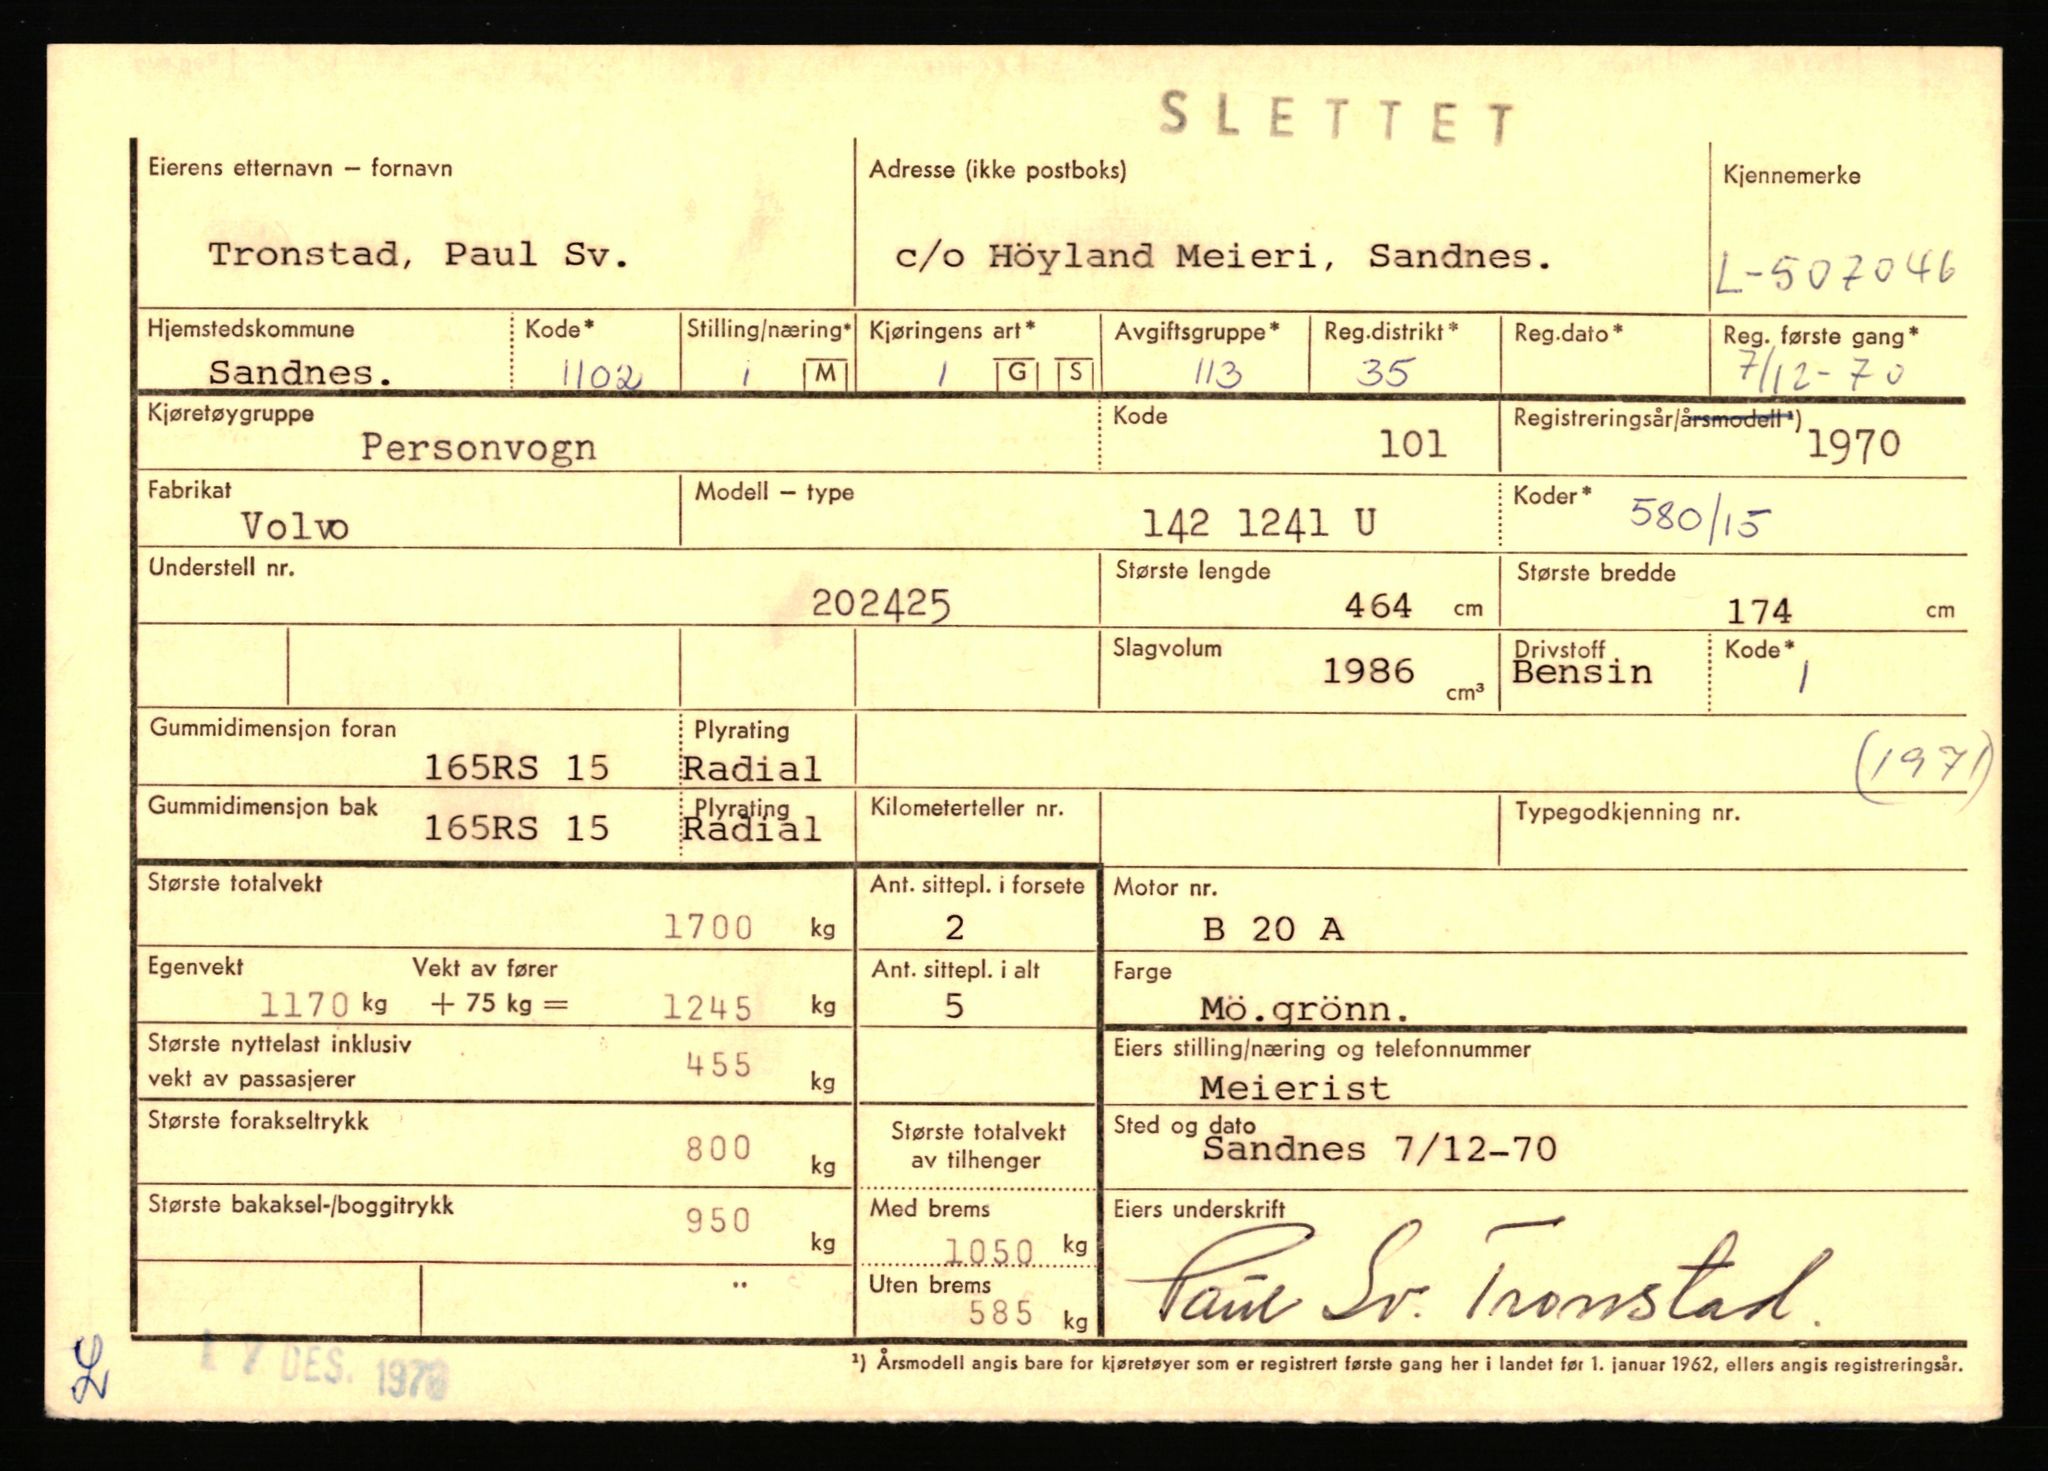 SLETTET
Eierens etternavn – fornavn
Adresse (ikke postboks)
Kjennemerke
Tronstad, Paul Sv.
c/o Höyland Meieri, Sandnes.
L-507046
Hjemstedskommune
Kode*
Stilling/næring*
Kjøringens art*
Avgiftsgruppe*
Reg.distrikt*
Reg.dato*
Reg. første gang*
Sandnes.
1102
1 M
1 G S
113
35
7/12-70
Kjøretøygruppe
Kode
Registreringsår/årsmodell¹)
Personvogn
101
1970
Fabrikat
Modell – type
Koder*
Volvo
142 1241 U
580/15
Understell nr.
Største lengde
Største bredde
202425
464 cm
174 cm
Slagvolum
Drivstoff
Kode*
1986 cm³
Bensin
1
Gummidimensjon foran
Plyrating
165RS 15
Radial
(1971)
Gummidimensjon bak
Plyrating
Kilometerteller nr.
Typegodkjenning nr.
165RS 15
Radial
Største totalvekt
Ant. sittepl. i forsete
Motor nr.
1700 kg
2
B 20 A
Egenvekt
Vekt av fører
Ant. sittepl. i alt
Farge
1170 kg + 75 kg = 1245 kg
5
Mö.grönn.
Største nyttelast inklusiv
vekt av passasjerer
455 kg
Eiers stilling/næring og telefonnummer
Meierist
Største forakseltrykk
800 kg
Største totalvekt
av tilhenger
Sted og dato
Sandnes 7/12-70
Største bakaksel-/boggitrykk
950 kg
Med brems
1050 kg
Eiers underskrift
"
Uten brems
585 kg
Paul Sv. Tronstad.
17 DES. 1970
¹) Årsmodell angis bare for kjøretøyer som er registrert første gang her i landet før 1. januar 1962, ellers angis registreringsår.